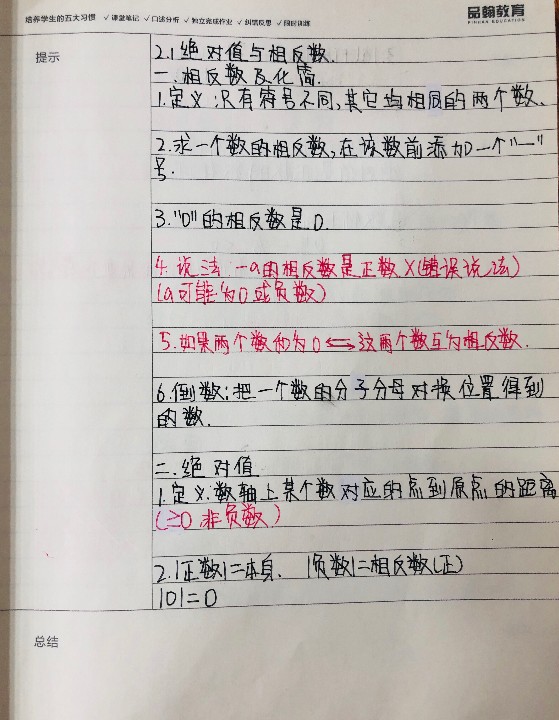 培养学生的五大习惯 ✓课堂笔记 ✓口述分析 ✓独立完成作业 ✓纠错反思 ✓限时训练
品翰教育
PINHAN EDUCATION
提示
2.1 绝对值与相反数.
一.相反数及化简.
1.定义:只有符号不同,其它均相同的两个数.
2.求一个数的相反数,在该数前添加一个"—"
号.
3."0"的相反数是0.
4.说法 -a的相反数是正数 X(错误说法)
(a可能为0或负数)
5.如果两个数和为0⟺这两个数互为相反数.
6.倒数:把一个数的分子分母对换位置得到
的数.
二.绝对值
1.定义:数轴上某个数对应的点到原点的距离
(≥0 非负数)
2.|正数|=本身. |负数|=相反数(正)
|0|=0
总结